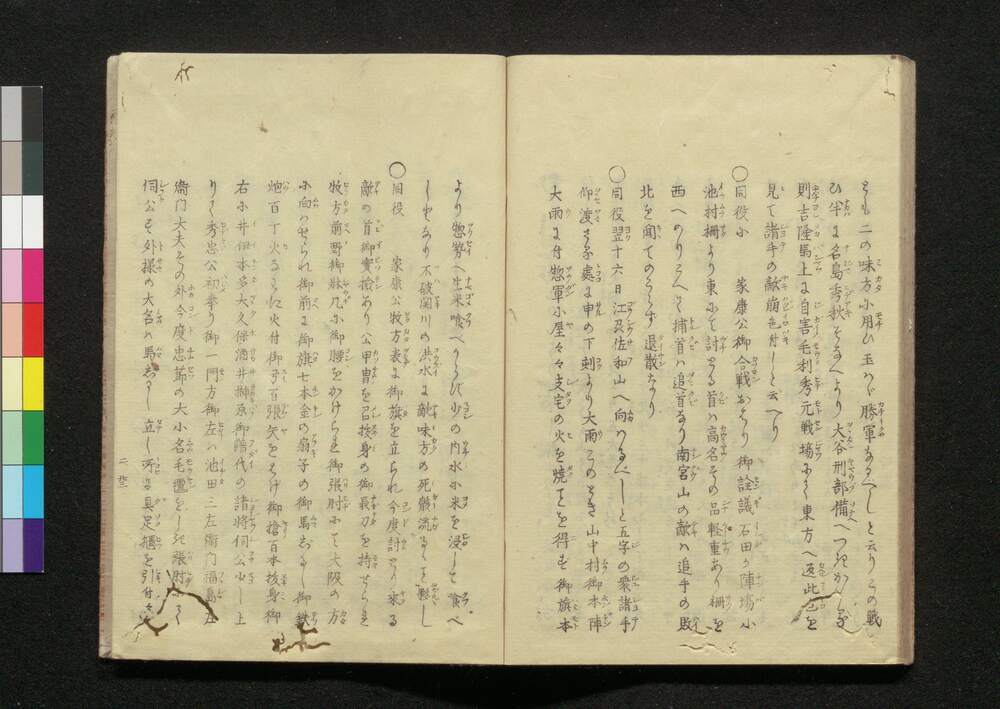 そも二の味方小用ひ玉ハヾ勝軍なるへしと云りこの戰
ひ半に名島秀秋そなへより大谷刑部備へつきかゝる
則吉隆馬上に自害毛利秀元戰場にて東方へ返此色を
見て諸手の敵崩色付しと云へり
〇同役小 家康公御合戰おそり御詮議石田ヶ陣場小
池村柵より東にて討とる首ハ高名その品輕重あり柵を
西へのりこへて捕首ハ追首なり南宮山の敵ハ追手の敗
北を聞てのこらす退散なり
〇同役翌十六日江刕佐和山へ向ハるべしと五字の衆諸手
仰渡さる處に申の下刻より大雨このとき山中村御本陣
大雨に付惣軍小屋々々支宅の火を燒ことを得す御旗本
より惣勢へ生米喰へからす少の内水小米を浸して喰へ
しとあり不破関川の洪水に敵味方の死骸流るゝこと夥し
〇同役 家康公牧方表に御旗を立られ今度討とり来る
敵の首御實撿あり公甲冑を召抜身の御長刀を持せられ
牧方前野御牀几小御腰をかけられ御張肘にて大阪の方
小向ハせられ御前に御旗七本金の扇子の御馬志るし御鉄
炮百丁火ふきれ火付御弓百張矢をはけ御搶百本抜身御
右小井伊本多大久保酒井榊原御譜代の諸將伺公少し上
りて秀忠公初挙り御一門方御左ハ池田三左衞門福島左
衞門大夫その外今度忠節の大小名毛氊をしき張肘にて
伺公す外様の大名ハ馬志るし立し所に具足櫃を引付々々